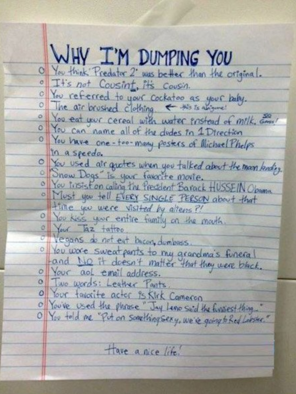 WHY I'M DUMPING YOU
You think "Predator 2" was better than the original.
It's not Cousint, it's cousin.
You referred to your Cockatoo as your baby.
The air brushed clothing ← this is general
You eat your cereal with water instead of milk.
You can name all of the dudes in 1 Direction
You have one-too-many posters of Michael Phelps
in a speedo.
You used air quotes when you talked about the moon landing
"Snow Dogs" is your favorite movie.
You insist on calling the President Barack HUSSEIN Obama
Must you tell EVERY SINGLE PERSON about that
time you were visited by aliens?!
You kiss your entire family on the mouth
Your Taz tattoo
Vegans do not eat bacon, dumbass.
You wore sweatpants to my grandma's funeral
and it doesn't matter that they were black.
Your aol email address.
Two words: Leather Pants
Your favorite actor is Kirk Cameron
You've used the phrase "Jay Leno said the funniest thing..."
You told me "Put on something sexy, we're going to Red Lobster."
Have a nice life!